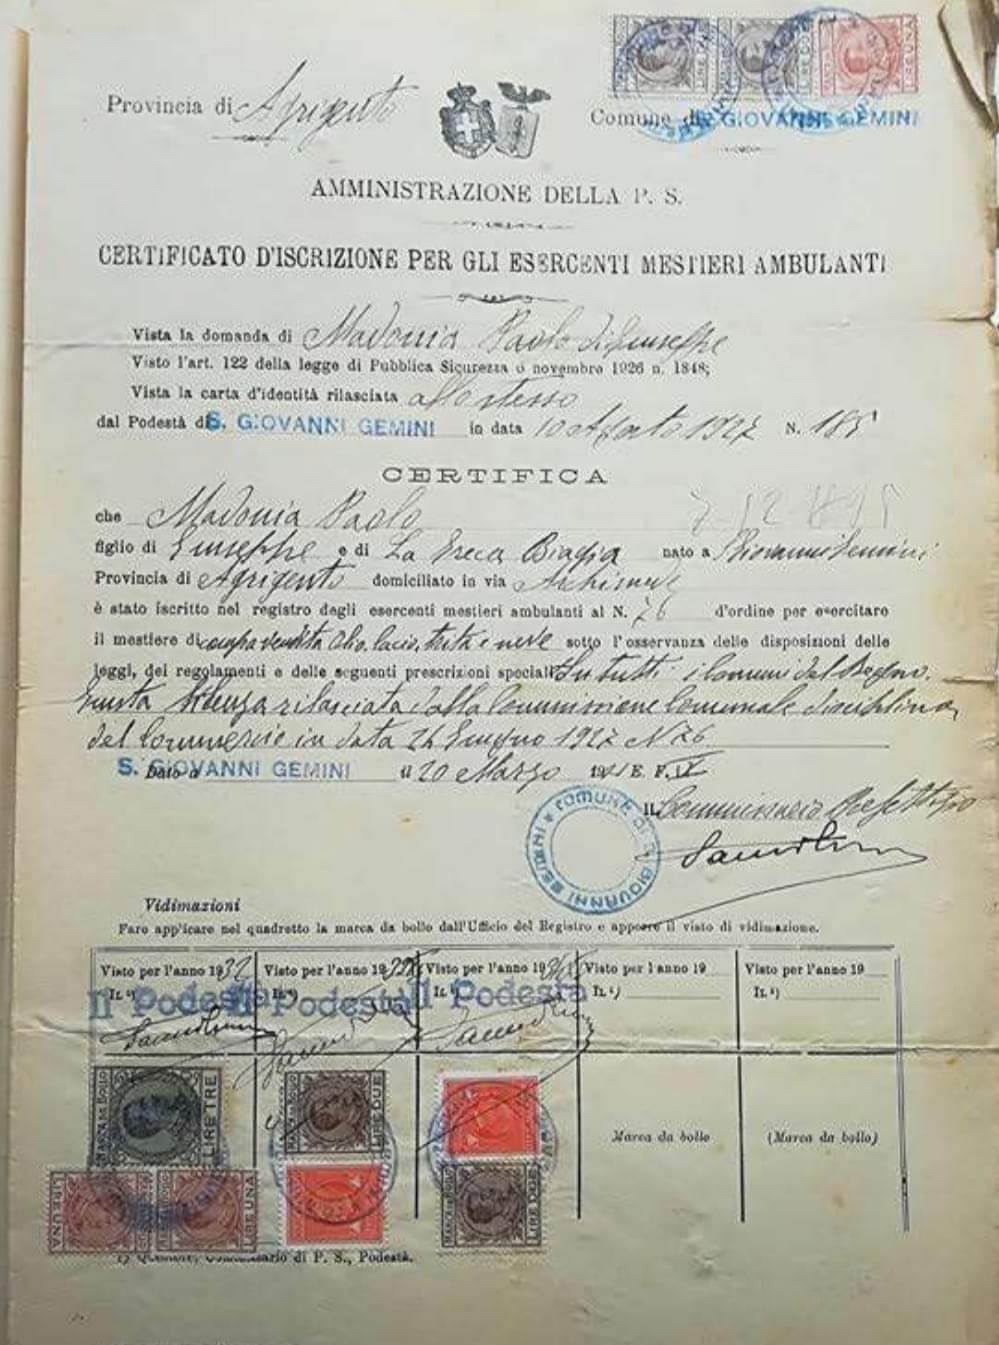 LIRE DUE
LIRE DUE
LIRE UNA
Provincia di Agrigento
Comune di S. GIOVANNI GEMINI
AMMINISTRAZIONE DELLA P. S.
CERTIFICATO D'ISCRIZIONE PER GLI ESERCENTI MESTIERI AMBULANTI
Vista la domanda di Madonia Paolo di Giuseppe
Visto l'art. 122 della legge di Pubblica Sicurezza 6 novembre 1926 n. 1848;
Vista la carta d'identità rilasciata allo stesso
dal Podestà di S. GIOVANNI GEMINI in data 10 Agosto 1927 N. 185
CERTIFICA
che Madonia Paolo
figlio di Giuseppe e di La Greca Biagia nato a S. Giovanni Gemini
Provincia di Agrigento domiciliato in via Archimede
è stato iscritto nel registro degli esercenti mestieri ambulanti al N. 76 d'ordine per esercitare
il mestiere di compra vendita olio, cacio, frutta e neve sotto l'osservanza delle disposizioni delle
leggi, dei regolamenti e delle seguenti prescrizioni speciali In tutti i Comuni del Regno.
Giusta licenza rilasciata dalla Commissione Comunale disciplina
del Commercio in data 24 Giugno 1927 N 76
Dato a S. GIOVANNI GEMINI il 20 Marzo 1931 E. F. IX
IL Commissario Prefettizio
COMUNE DI S. GIOVANNI GEMINI
Vidimazioni
Fare applicare nel quadretto la marca da bollo dall'Ufficio del Registro e apporre il visto di vidimazione.
Visto per l'anno 1932 Visto per l'anno 19 Visto per l'anno 19 Visto per l'anno 19 Visto per l'anno 19
IL ¹) Il Podestà IL ¹) Il Podestà Il Podestà IL ¹) IL ¹)
MARCA DA BOLLO LIRE TRE
MARCA DA BOLLO LIRE DUE
Marca da bollo (Marca da bollo)
LIRE UNA
LIRE UNA
MARCA DA BOLLO LIRE DUE
¹) Questore, Commissario di P. S., Podestà.